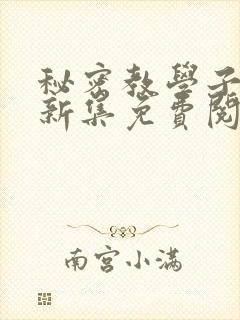 秘密教學子
新集免費閱
南宫小滿